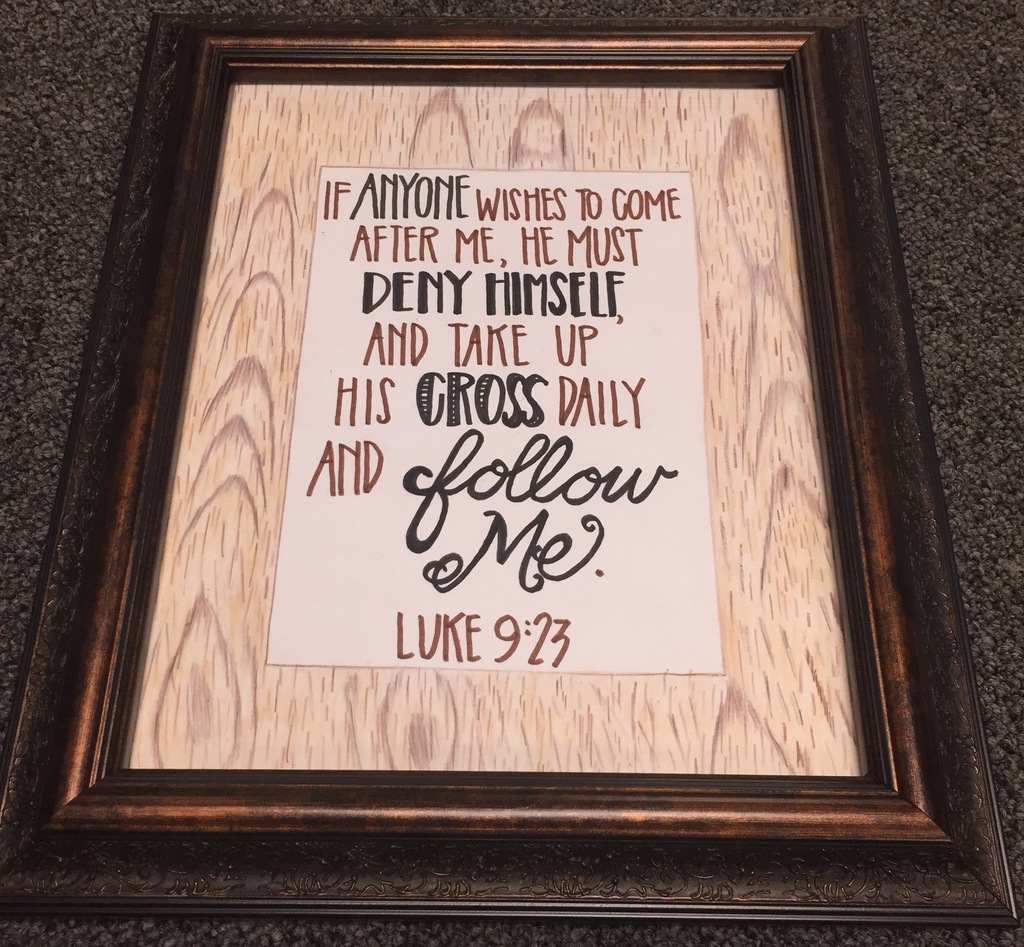 IF ANYONE WISHES TO COME
AFTER ME, HE MUST
DENY HIMSELF,
AND TAKE UP
HIS CROSS DAILY
AND follow
Me.
LUKE 9:23